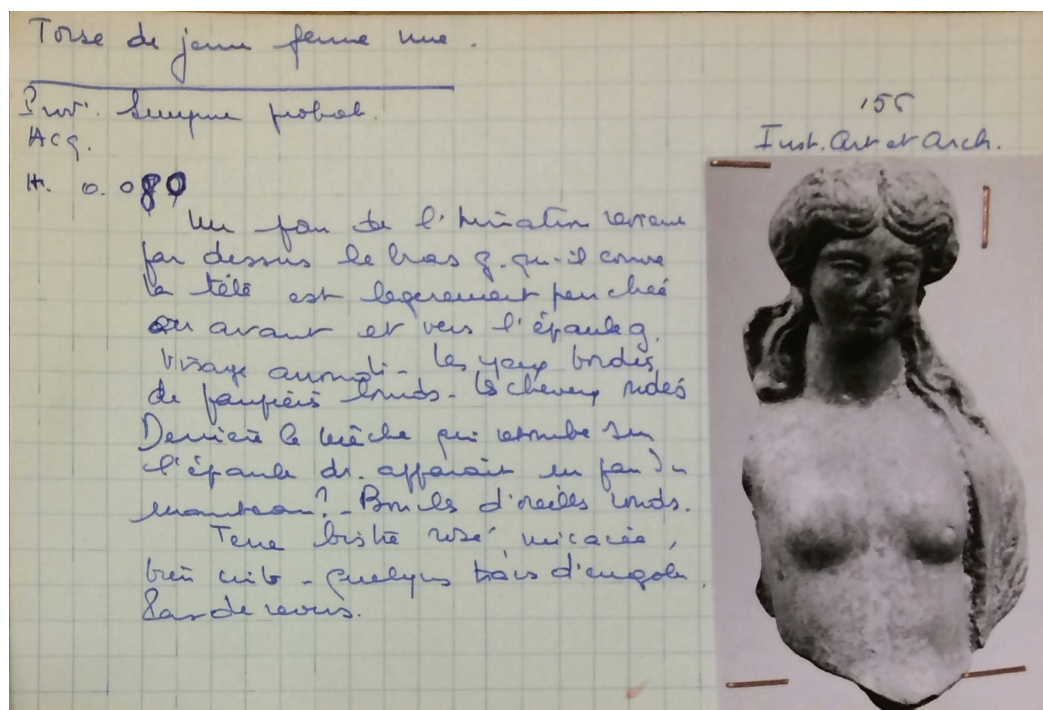 Torse de jeune femme nue.
Prov. Smyrne probab.
Acq.
H. 0.080
155
Inst. Art et Arch.
Un pan de l'himation revient
par dessus le bras g. qu'il couvre
la tête est legerement penchée
en avant et vers l'épaule g.
Visage arrondi - les yeux bordés
de paupières lourds - les cheveux ridés
Derrière la mèche qui retombe sur
l'épaule dr. apparait un pan du
manteau? - Boucles d'oreilles rondes.
Terre bistre rosé micacée,
bien cuite - quelques traces d'engobe.
Pas de revers.